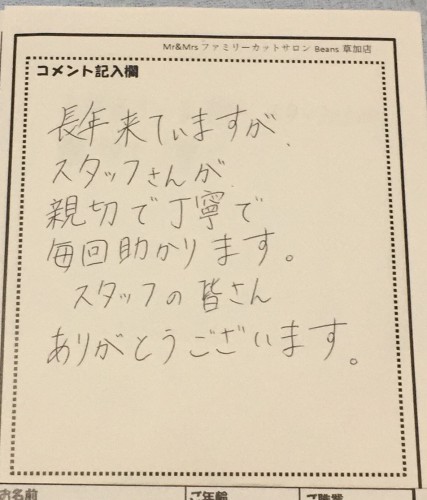 Mr&Mrs ファミリーカットサロン Beans 草加店
コメント記入欄
長年来ていますが、
スタッフさんが
親切で丁寧で
毎回助かります。
スタッフの皆さん
ありがとうございます。
お名前
ご年齢
ご職業